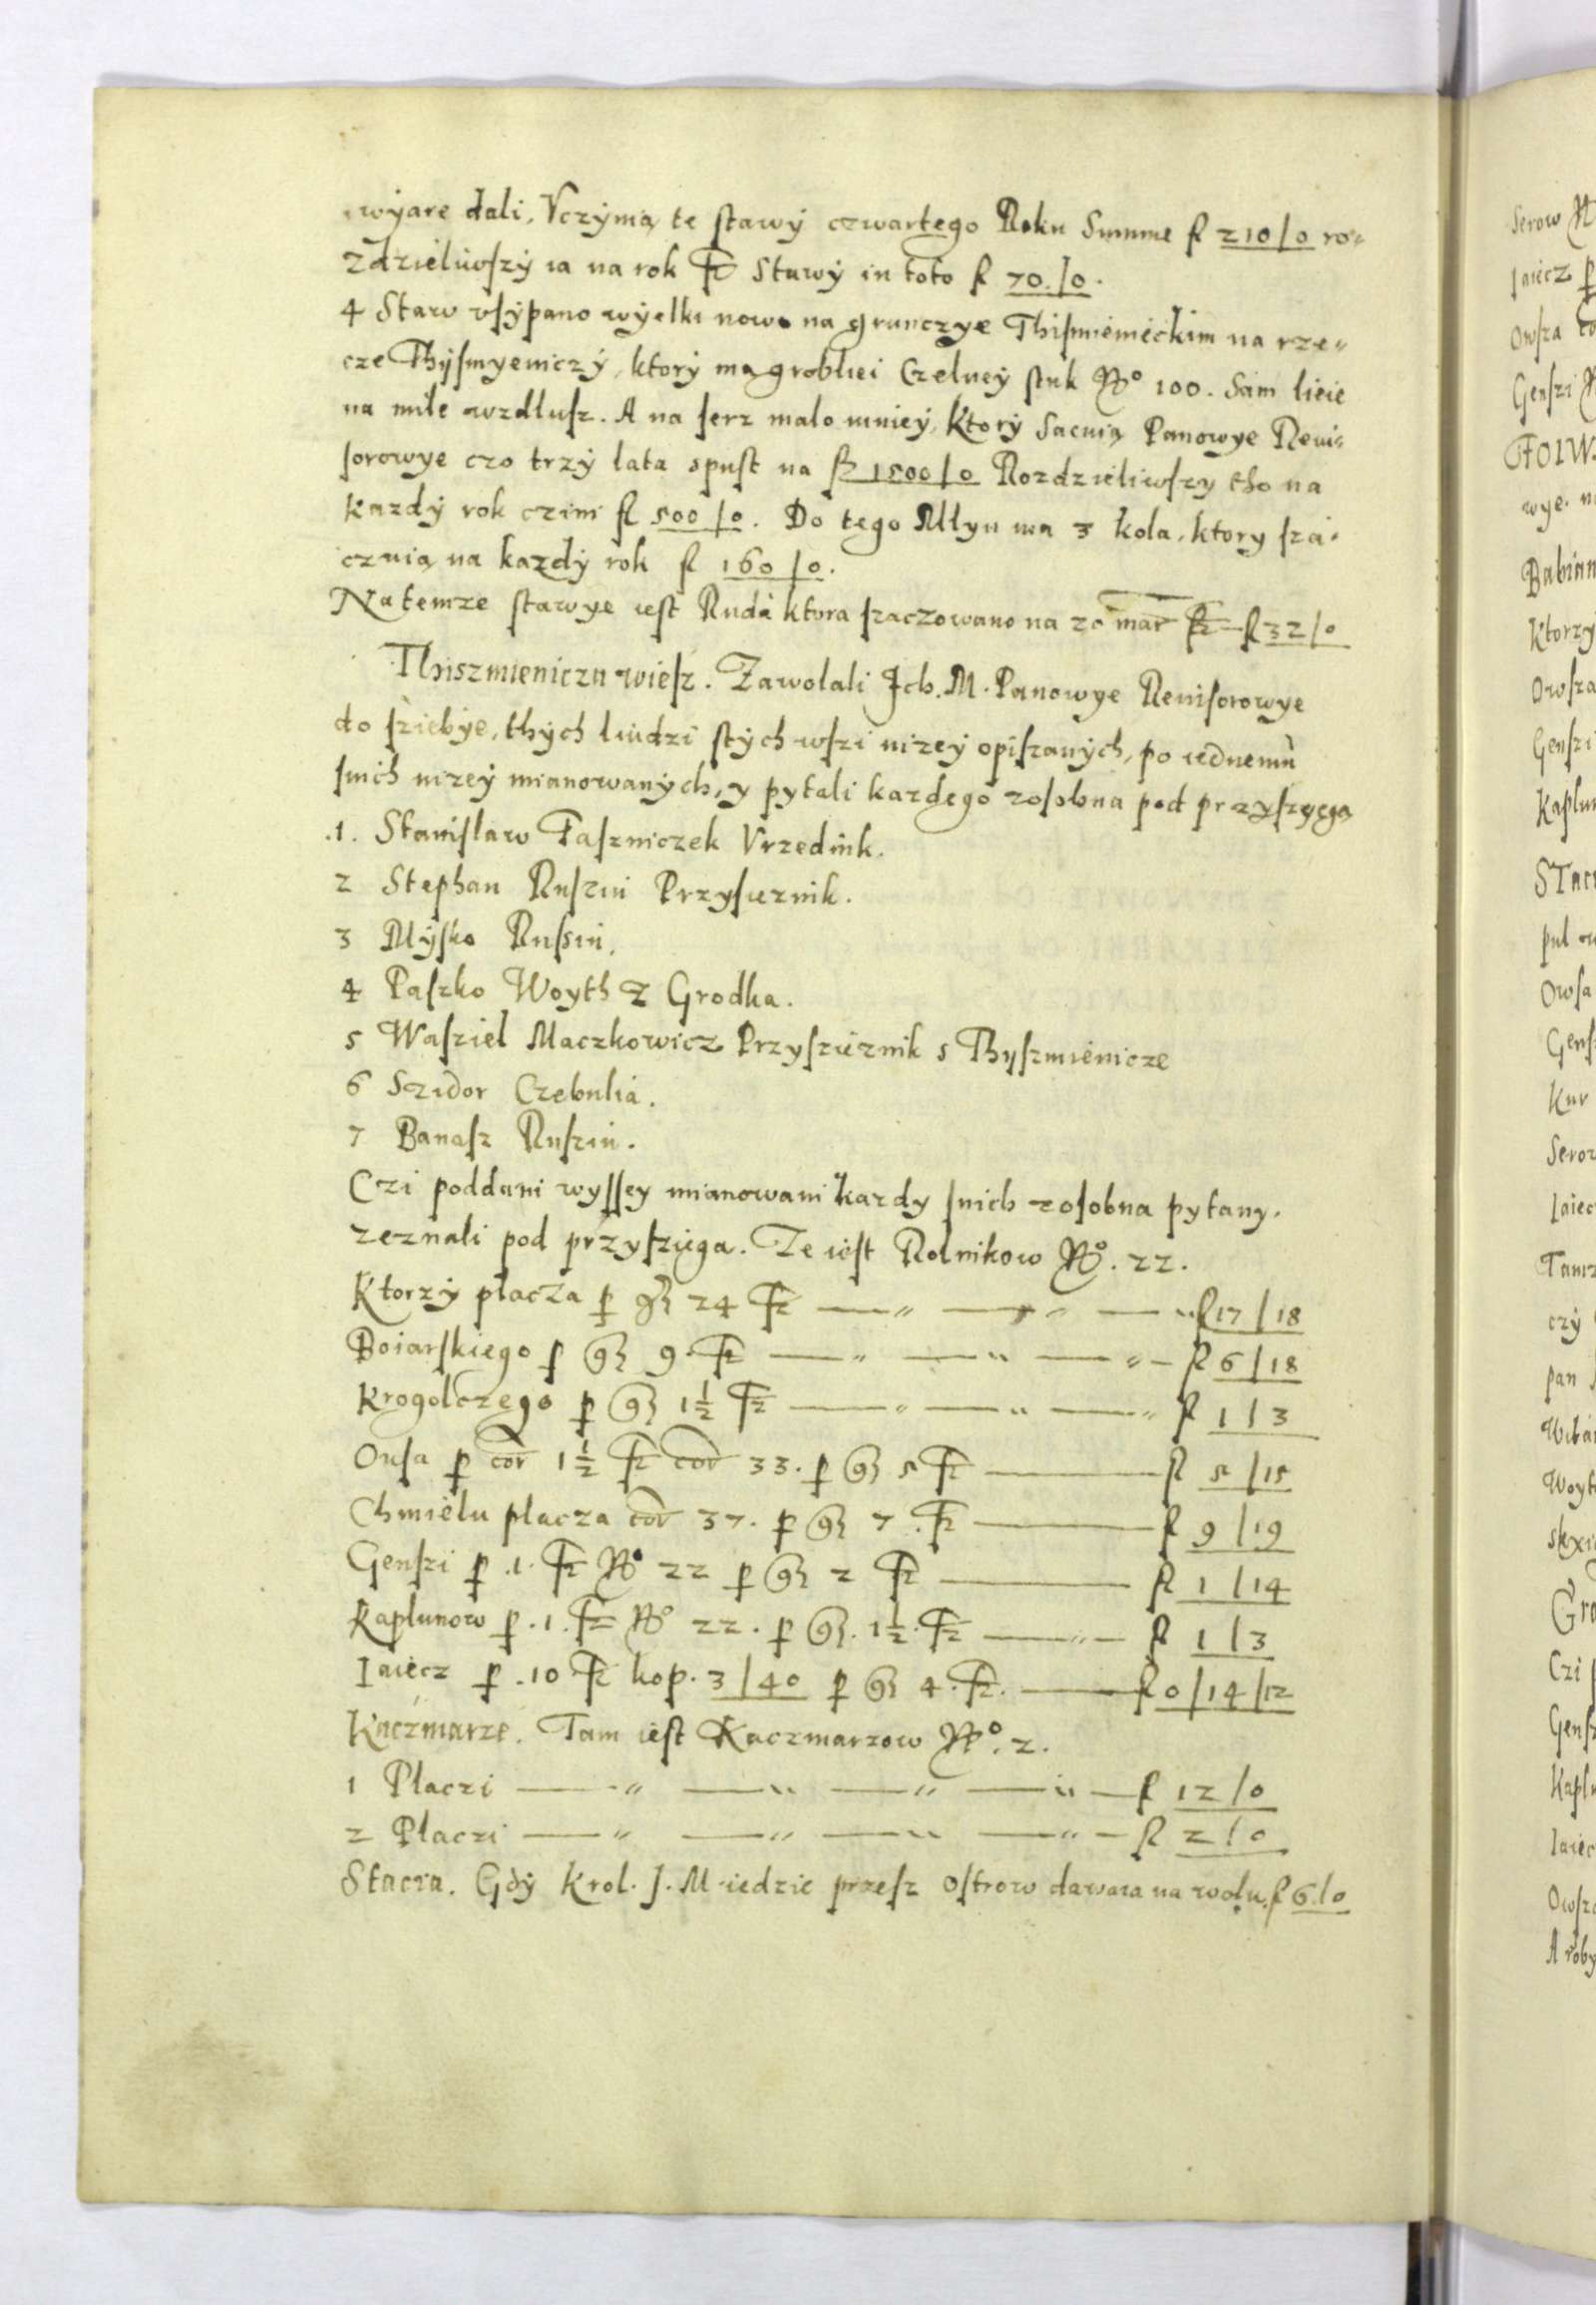 wÿare dali, Vczÿnią te stawÿ czwartego Roku Summe fl 210/0 ro-
zdzieliwſzÿ ia na rok Fᵗ Stawÿ in toto fl 70/0.
4 Staw vſÿpano wÿelki nowo na grunczye Thiſmienieckim na rze-
cze Thÿſmyeniczÿ, ktorÿ ma grobliei Czelneÿ ſtuk No 100. Sam lieie
na mile wzdluſz. A na ſerz malo mnieÿ, Ktorÿ Sacuią Panowye Reui-
ſorowye czo trzÿ lata spuſt na fl 1500/0 Rozdzieliwſzy tho na
Kazdÿ rok czini fl 500/0. Do tego Młyn ma 3 kola, ktory ſza-
czuią na kazdÿ rok fl 160/0.
Na temze ſtawye ieſt Ruda ktora ſzaczowano na 20 mar fl 32/0
Thiszmienicza wieſz. Zawolali Ich. M. Panowye Reuiſorowye
do ſziebÿe, thÿch ludzi ſtÿch wſzi nizeÿ opiſzanÿch, po iednemu
ſnich nizeÿ mianowanÿch, y pytali kazdego zoſobna pod przyſzyęgą
1. Staniſlaw Paſzniczek Vrzednik.
2 Stephan Ruſzin Przyſieznik.
3 Mÿſko Ruſsin.
4 Paſzko Woyth Z Grodka.
5 Waſziel Maczkowicz Przyſzieznik s Thyſzmienicze
6 Szidor Czebulia.
7 Banaſz Ruſzin.
Czi poddani wyſſey mianowani kazdy ſnich zoſobna pytany.
zeznali pod przyſziega. Ze ieſt Rolnikow No. 22.
Ktorzÿ placza p gr 24 fl 17/18
Boiarſkiego p gr 9 fl 6/18
Krogolczego p gr 1½ fl 1/3
Ouſa p cor 1½ cor 33. p gr 5 fl 5/15
Chmielu placza cor 37. p gr 7 fl 9/19
Genſzi p .1. No 22 p gr 2 fl 1/14
Kaplunow p .1. No 22. p gr. 1½ fl 1/3
Iaiecz p .10 kop. 3/40 p gr 4. fl 0/14/12
Kaczmarze. Tam ieſt Kaczmarzow No. 2.
1 Placzi fl 12/0
2 Placzi fl 2/0
Stacia. Gdÿ Krol. J. M. iedzie przeſz Oſtrow dawaia na wolu. fl 6/0